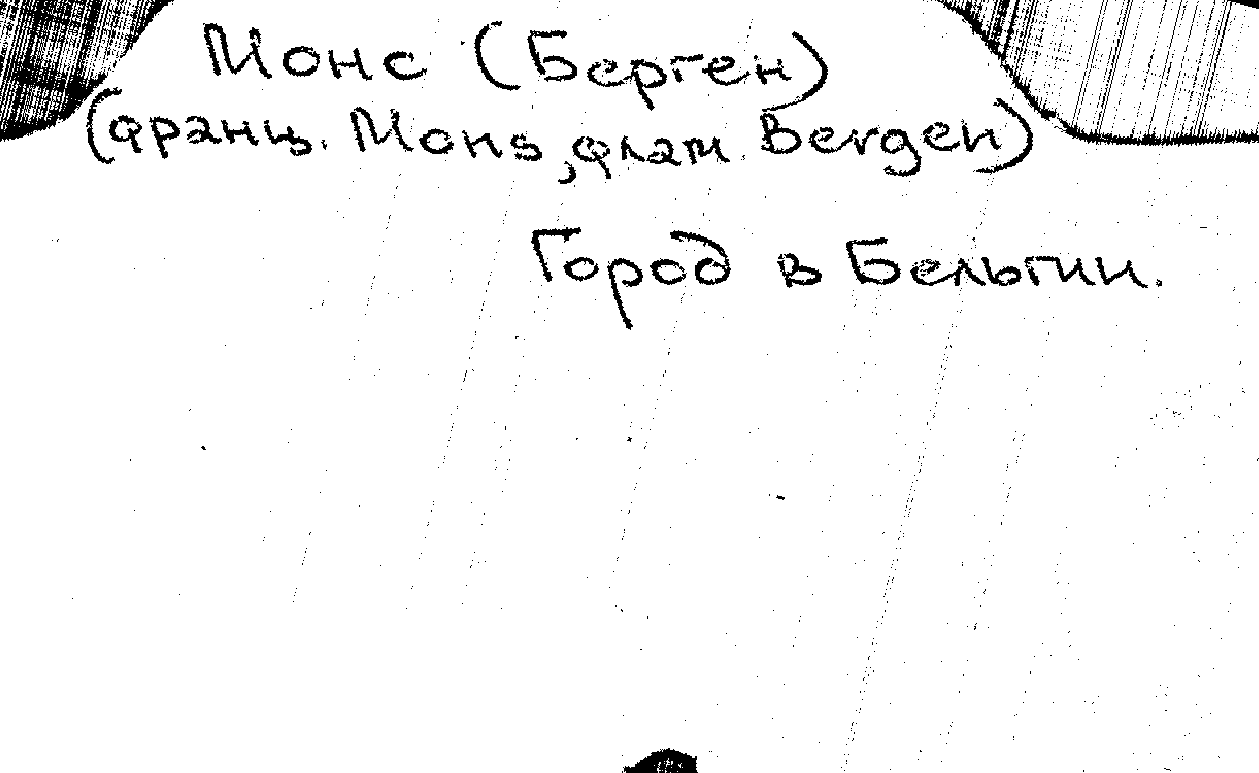 Монс (Берген)
(франц. Mons, флам. Bergen)
Город в Бельгии.